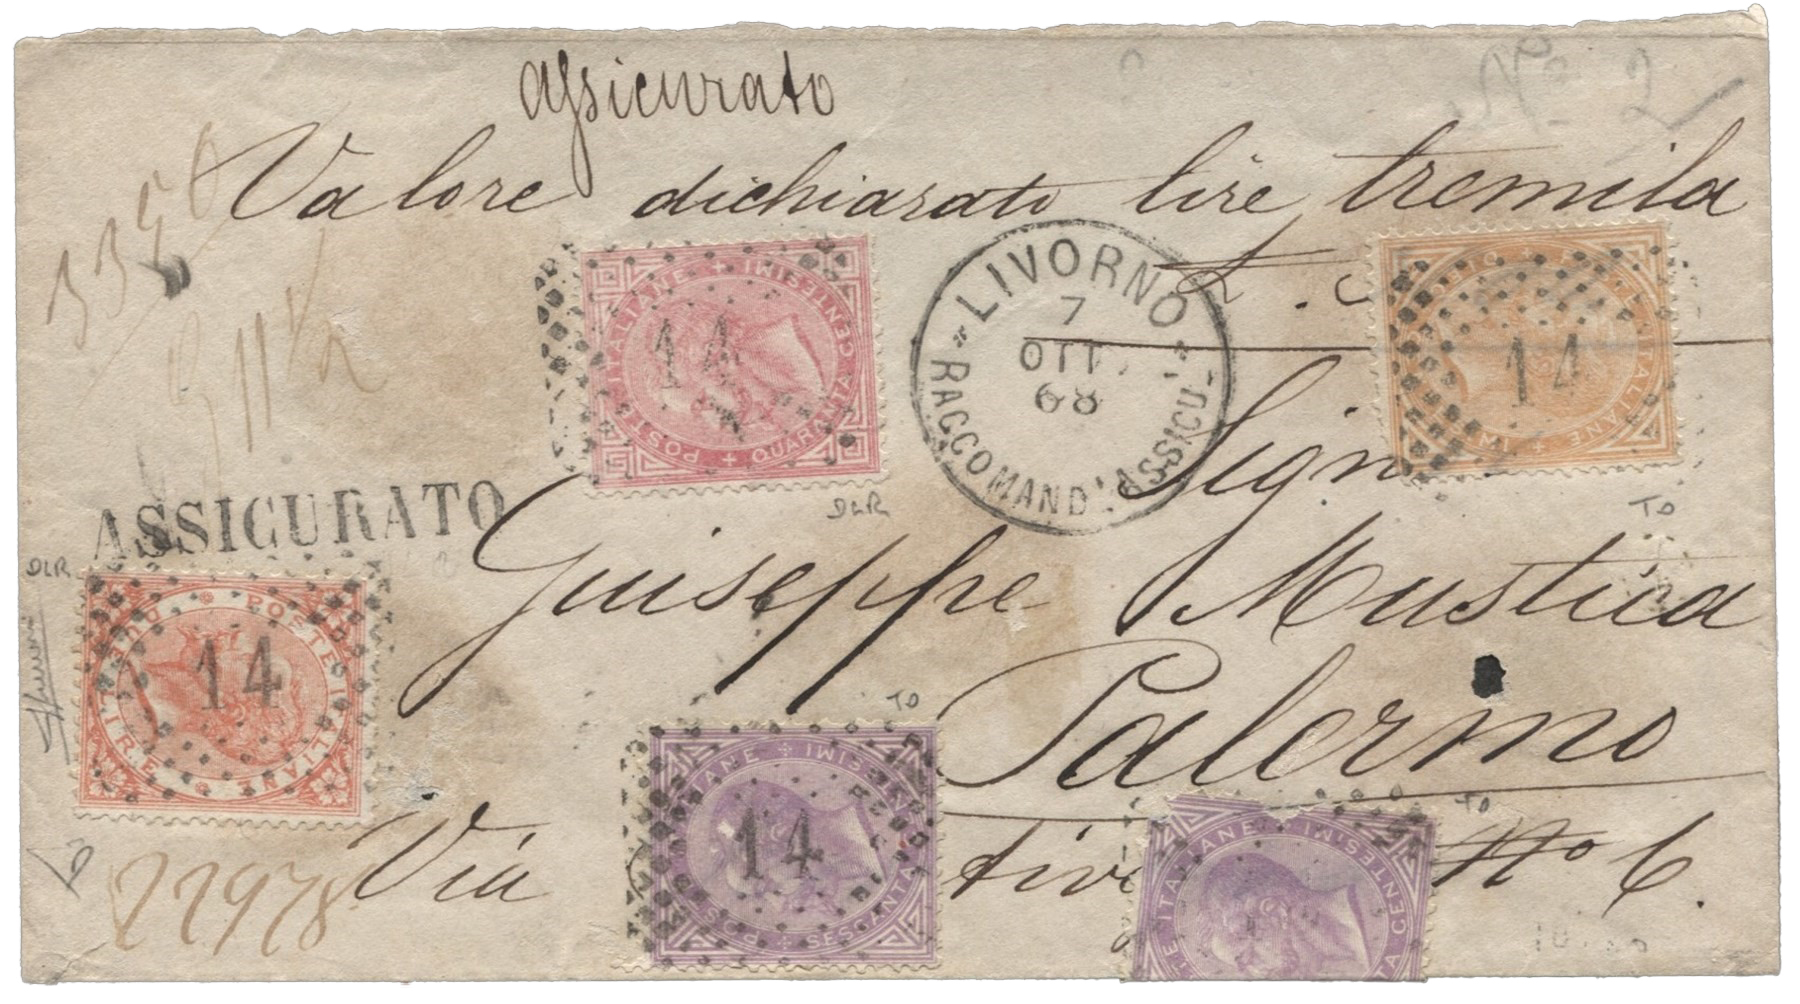 assicurato
Nº 2
Valore dichiarato lire tremila
3350
11½
LIVORNO
7
OTT.
68
RACCOMAND. ASSICU.
POSTE ITALIANE + CENTESIMI QUARANTA +
14
14
DLR
TO
ASSICURATO
Sign
DLR
Giuseppe Mustica
DUE LIRE POSTE ITALIANE
14
TO
Palermo
POSTE ITALIANE + CENTESIMI SESSANTA +
14
TO
E ITALIANE + CENTESIMI
Via Nº 6.
22978